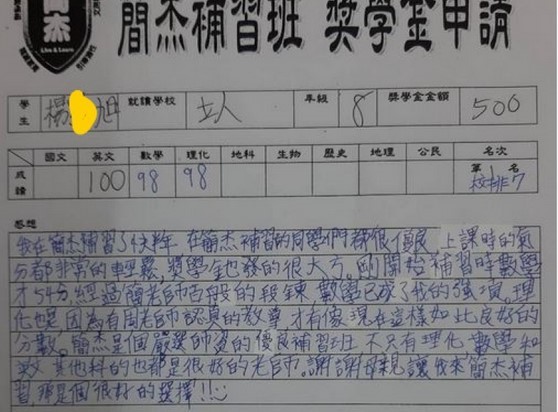 簡杰
Live & Learn
簡杰補習班 獎學金申請
學生 楊 旭 就讀學校 立人 年級 8 獎學金金額 500
國文 英文 數學 理化 地科 生物 歷史 地理 公民 名次
成績 100 98 98 第 名 校排7
感想
我在簡杰補習了快半年 在簡杰補習的同學們都很優良 上課時的氣
分都非常的輕鬆,獎學金也發的很大方。剛開始補習時數學
才54分,經過簡老師百般的段鍊,數學已成了我的強項。理
化也是,因為有周老師認真的教導,才有像現在這樣如此良好的
分數。簡杰是個嚴選師資的優良補習班 不只有理化 數學和
英文 其他科的也都是很好的老師。謝謝母親讓我來簡杰補
習,那是個很好的選擇!!